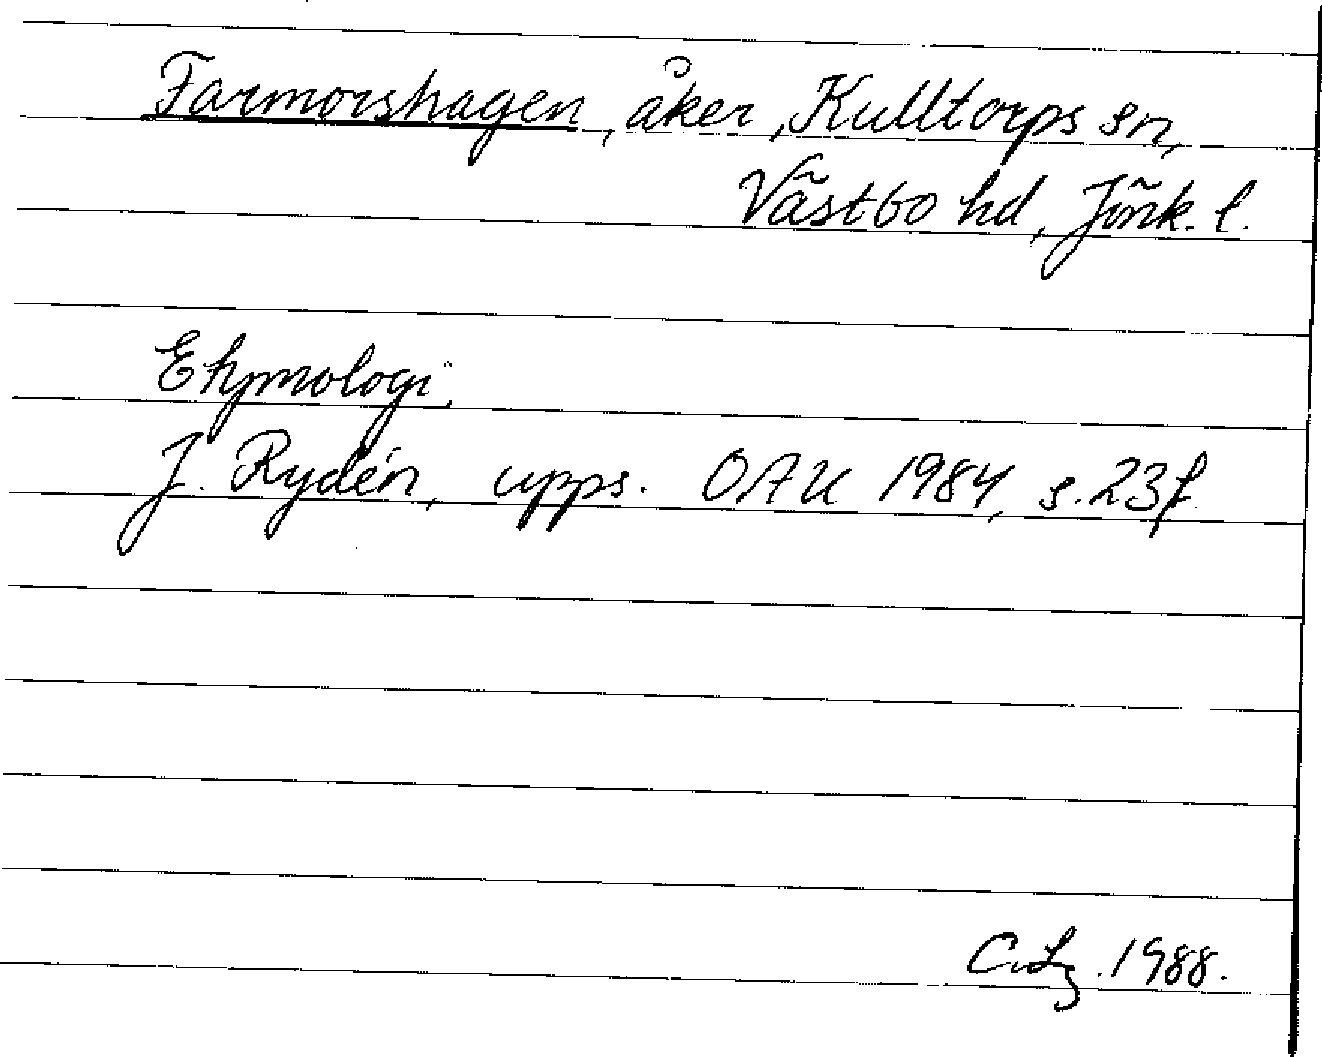 Farmorshagen, åker, Kulltorps sn,
Västbo hd, Jönk. l.
Etymologi.
J. Rydén, upps. OAU 1984, s. 23 f.
C. Lz. 1988.